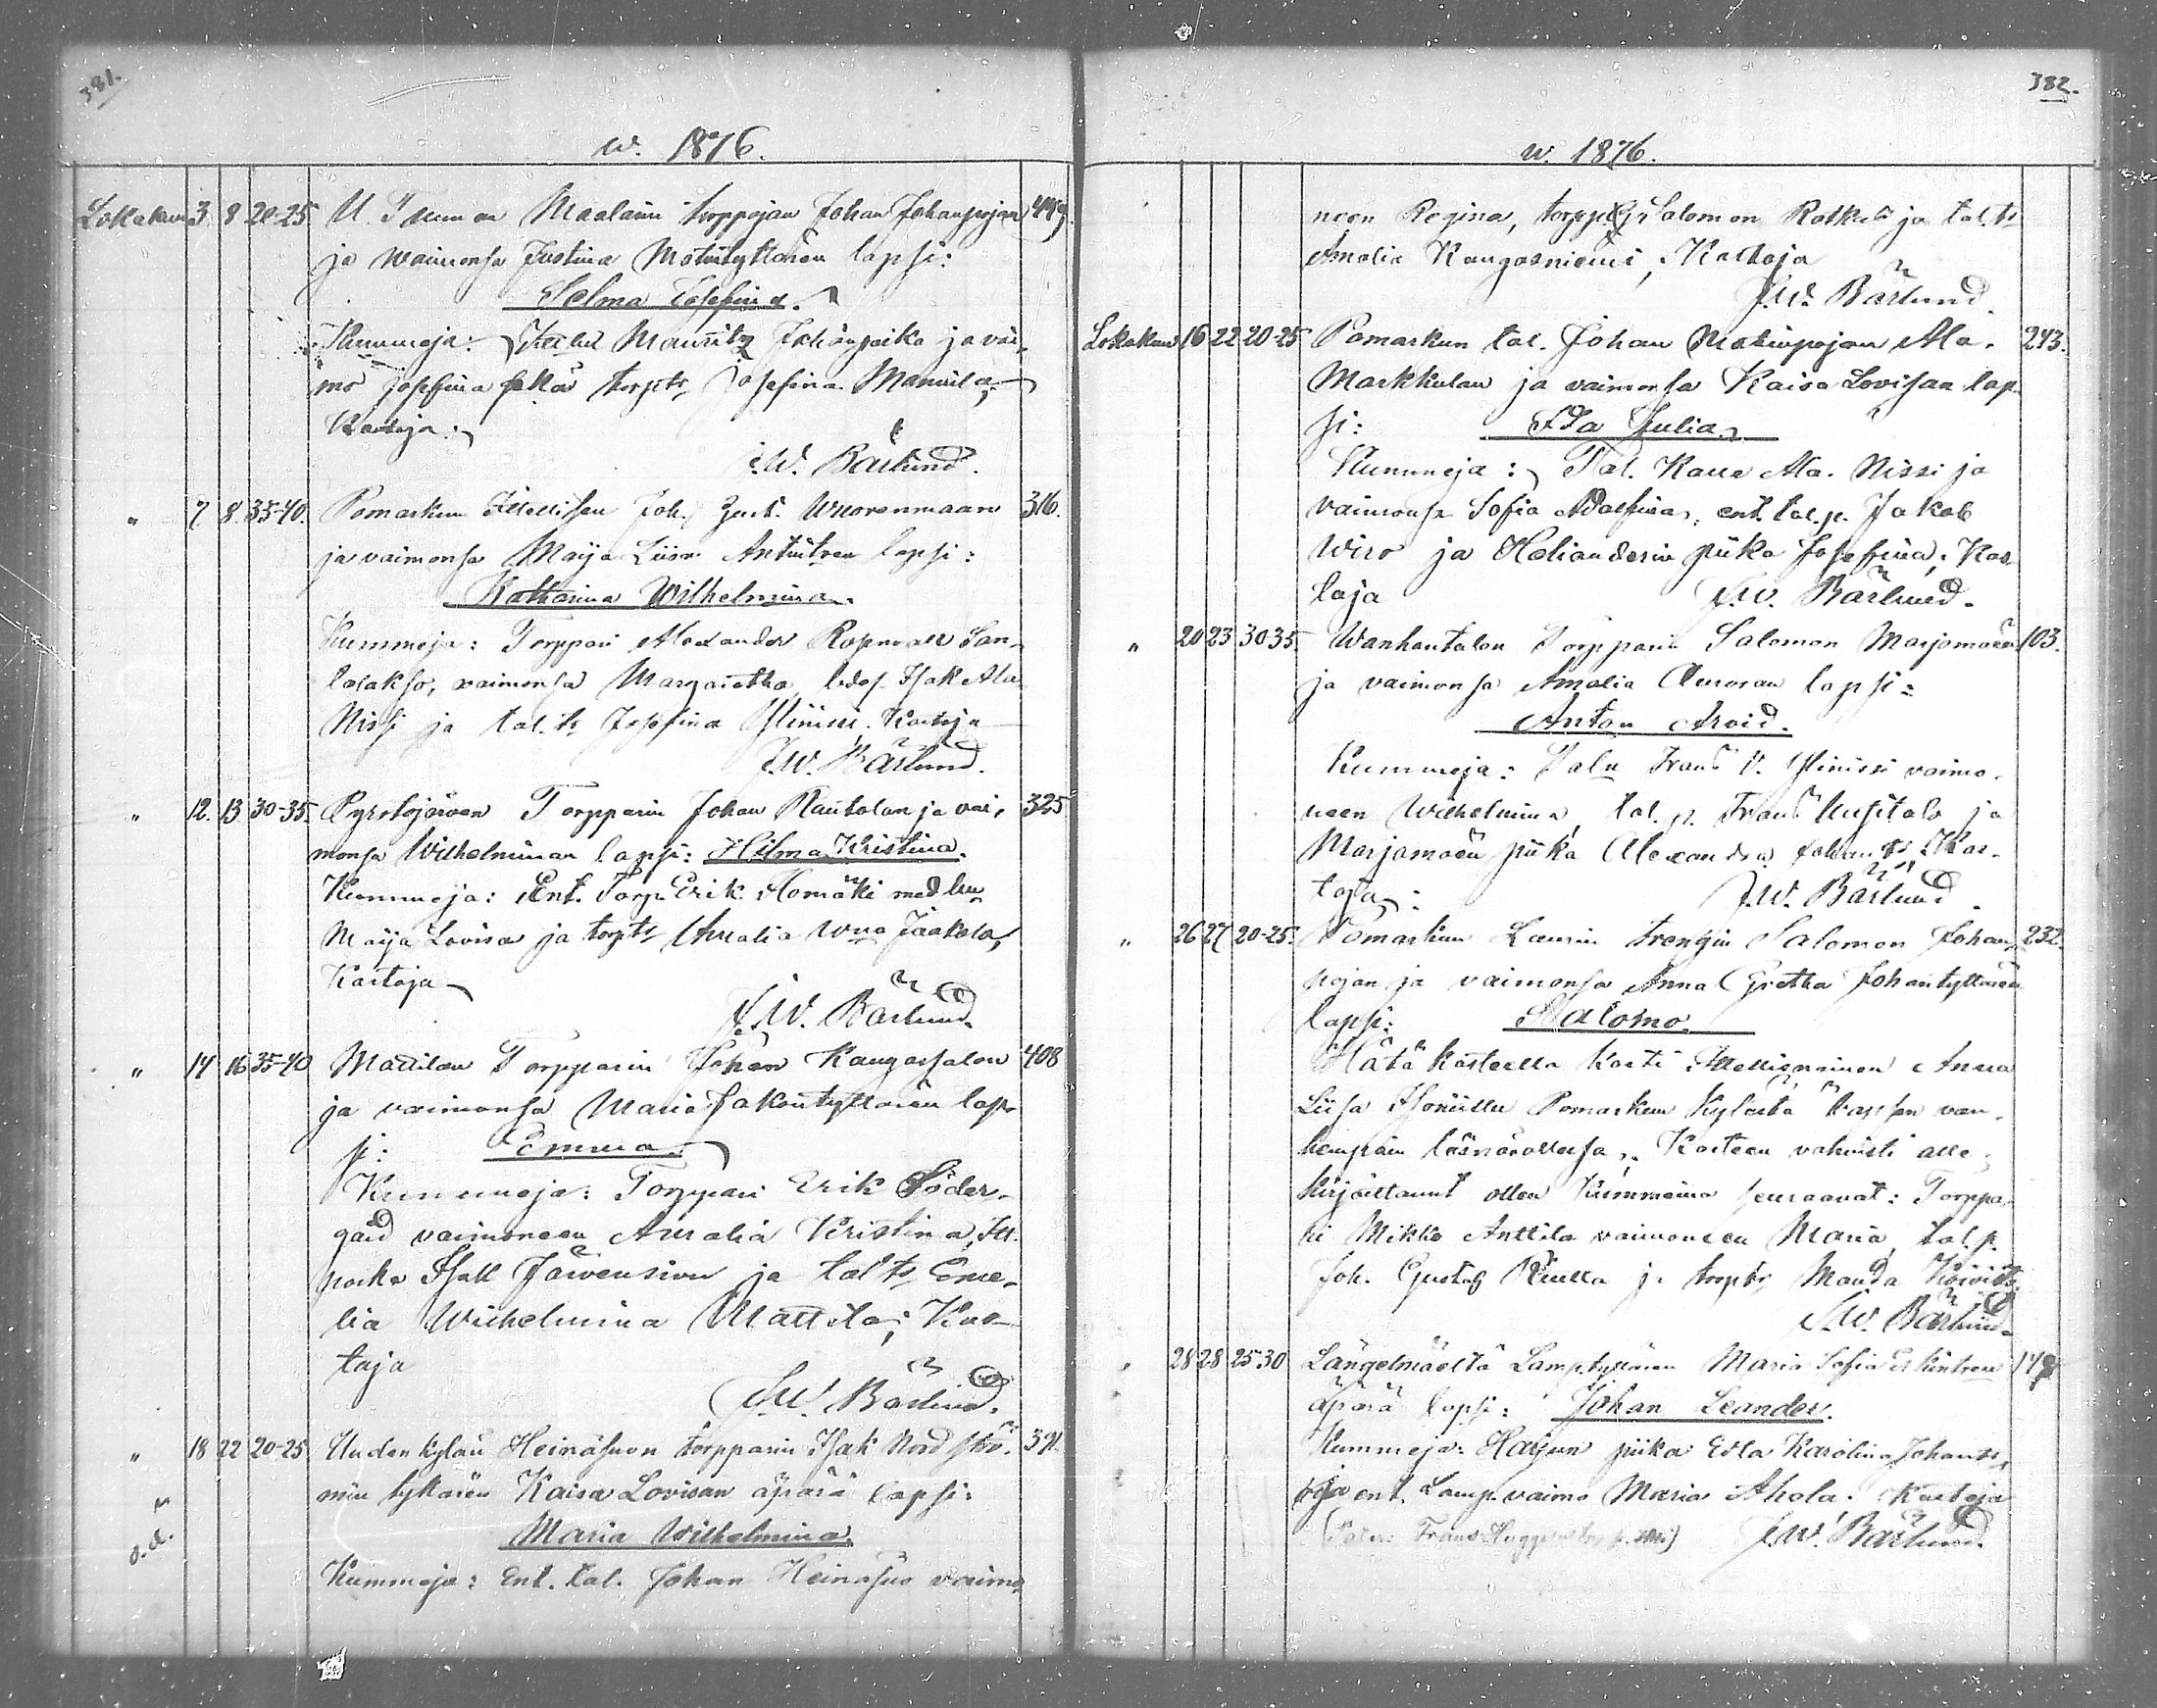 381.
w. 1876.
Lokakuu 3. 8 20-25 U. Maalarin torpparin Johan Johanpojan 449.
ja waimonsa Justina Matintyttären lapsi:
Selma Josefina.
Kummeja: Mauritz Johanpoika ja vai,
mo Josefina torpts Josefina Mannila,
Kastaja:
J.W. Bärlund.
" 7 8 35-40. Pomarkun Itsellisen Joh. Gust. Wuorenmaan 316.
ja vaimonsa Maija Liisa Antintren lapsi:
Katharina Wilhelmina.
Kummeja: Torppari Alexander San-
laakso, vaimonsa Margaretha, Isak Ala
Nissi ja tal. tr Josefina Ylinissi. Kastaja
J.W. Bärlund.
" 12. 13 30-35. Pyssjärven Torpparin Johan Rautalan ja vai, 325
monsa Wilhelminan lapsi: Hilma Kristina.
Kummeja: Ent. Torp. Erik Homäki med hu
Maija Lovisa ja torpts Amalia Wuo Jaakola,
Kastaja
J.W. Bärlund.
" 14 16 35-40 Mattilan Torpparin Johan Kangassalon 408
ja vaimonsa Maria Jakontyttären lap-
si: Emma.
Kummeja: Torppari Erik Söder-
gård vaimoneen Amalia Kristina, Itt.
poika Isak Järvensivu ja talts Eme-
lia Wilhelmina Mattila; Kas-
taja
J.W. Bärlund.
" 18 22 20-25 Uudenkylän Heinäsuon torpparin Isak Nordströ- 391.
min tyttären Kaisa Lovisan äpärä lapsi:
o.ä. Maria Wilhelmina.
Kummeja: Ent. tal. Johan Heinäsuo vaimo
382.
w. 1876.
neen Regina, torpp. Salomon ja tal.tr
Amalia Kangasniemi; Kastaja
J.W. Bärlund.
Lokakuu 16 22 20-25 Pomarkun tal. Johan Matinpojan Ala- 243.
Markkulan ja vaimonsa Kaisa Lovisan lap
si: Ida Julia.
Kummeja: Tal. Kalle Ala-Nissi ja
vaimonsa Sofia Adolfina, ent. tal.p. Jakob
Wiro ja Helianderin piika Josefina; Kas
taja J.W. Bärlund.
" 20 23 30 35. Wanhantalon Torpparin Salomon Marjamäen 103.
ja vaimonsa Amalia Auroran lapsi:
Anton Arvid.
Kummeja: Frans V. Ylinissi vaimo-
neen Wilhelmina, tal. p. Frans Uusitalo ja
Marjamäen piika Alexandra Johants, Kas-
taja: J.W. Bärlund.
" 26 27 20-25. Pomarkun Laurin trengin Salomon Johan 232.
pojan ja vaimonsa Anna Gretha Johantyttären
lapsi: Salomo.
Hätäkasteella kasti Itsellisnainen Anna
Liisa Pomarkun kylästä lapsen van-
hempain läsnäollessa. Kasteen vahvisti alle-
kirjoittanut ollen kummeina seuraavat: Torppa-
ri Mikko Anttila vaimoneen Maria, tal. p.
Joh. Gustaf ja torpts Manda Koivisto.
J.W. Bärlund.
" 28 28 25 30 Längelmäeltä Lamp.tyttären Maria Sofia Erkintren 147
äpärä lapsi: Johan Leander.
Kummeja: Harjun piika Edla Karolina Johants,
ja ent. Lamp. vaimo Maria Ahola. Kastaja
J.W. Bärlund.